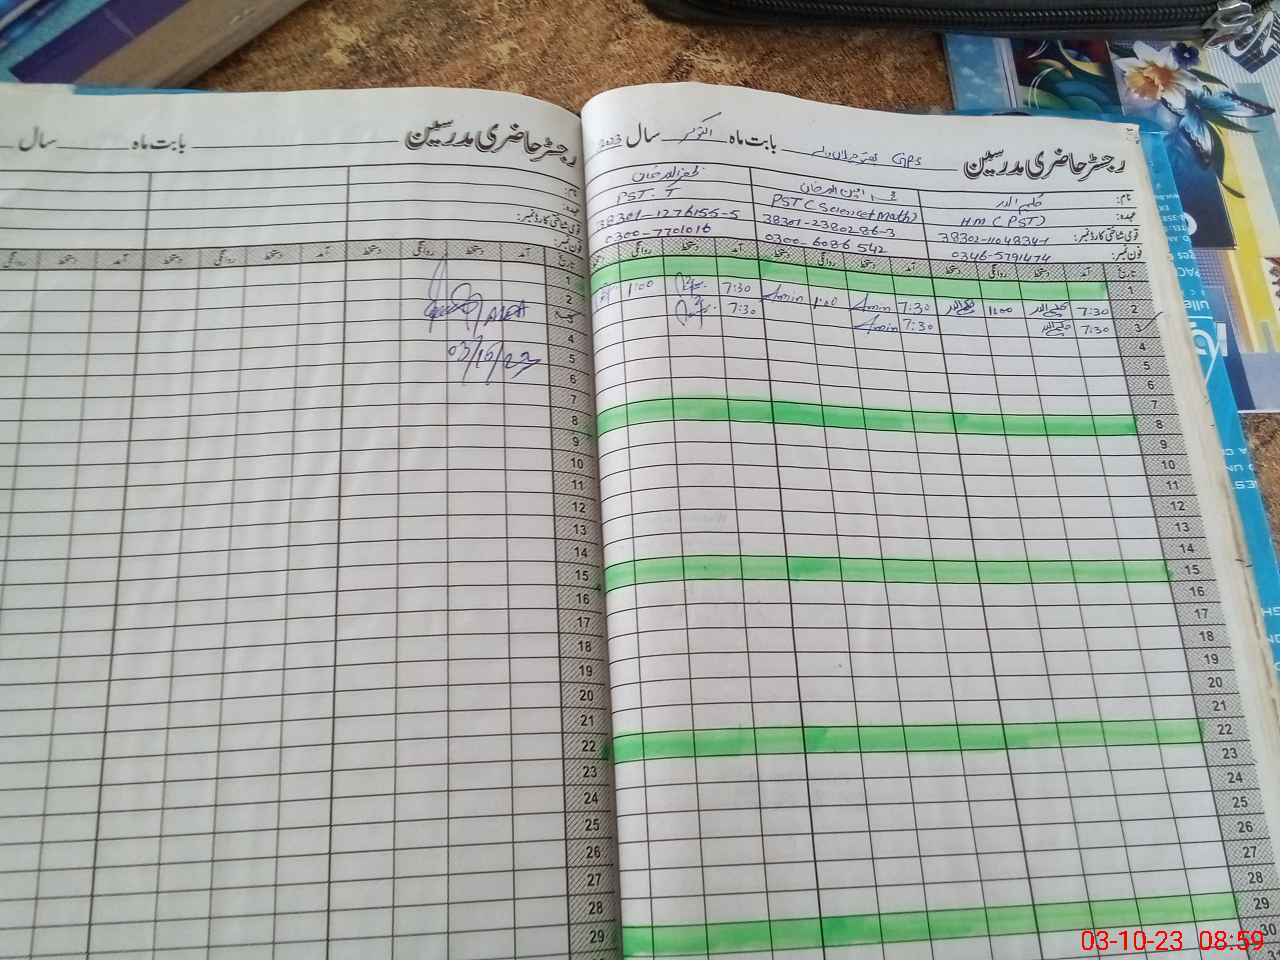 رجسٹر حاضری مدرسین GPS بابت ماہ اکتوبر سال 2023
نام: کلیم اللہ
ظفر اللہ خان
عہدہ: HM (PST) PST (Science+Math) PST. T
قومی شناختی کارڈ نمبر: 38302-1104834-1 38301-2380286-3 38301-1276155-5
فون نمبر: 0346-5791474 0300-6086542 0300-7701016
تاریخ آمد دستخط روانگی دستخط آمد دستخط روانگی دستخط آمد دستخط روانگی دستخط
1
2 7:30 کلیم اللہ 1:00 کلیم اللہ 7:30 Amin 1:00 Amin 7:30 1:00
3 7:30 کلیم اللہ 7:30 Amin 7:30
4
5
6
7
8
9
10
11
12
13
14
15
16
17
18
19
20
21
22
23
24
25
26
27
28
29
30
رجسٹر حاضری مدرسین بابت ماہ سال
نام:
عہدہ:
قومی شناختی کارڈ نمبر:
فون نمبر:
تاریخ آمد دستخط روانگی دستخط آمد دستخط روانگی دستخط آمد دستخط روانگی
1
2
3
4
03/10/23
5
6
7
8
9
10
11
12
13
14
15
16
17
18
19
20
21
22
23
24
25
26
27
28
29
03-10-23 08:59